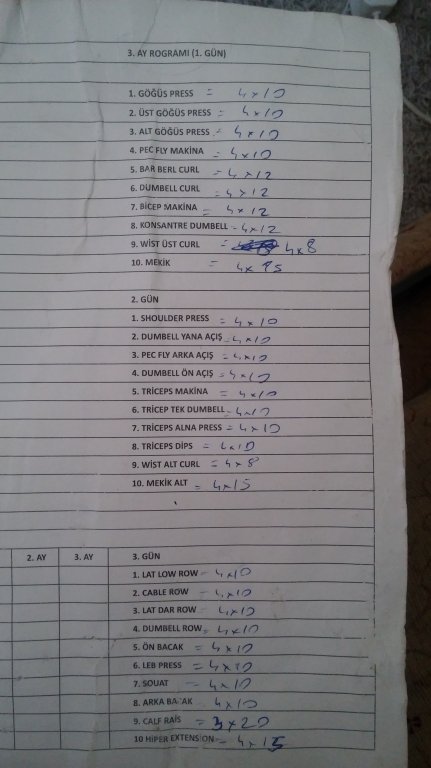 3. AY ROGRAMI (1. GÜN)
1. GÖĞÜS PRESS = 4x10
2. ÜST GÖĞÜS PRESS = 4x10
3. ALT GÖĞÜS PRESS = 4x10
4. PEC FLY MAKİNA = 4x10
5. BAR BERL CURL = 4x12
6. DUMBELL CURL = 4x12
7. BİCEP MAKİNA = 4x12
8. KONSANTRE DUMBELL - 4x12
9. WİST ÜST CURL = 4x8
10. MEKİK = 4x15
2. GÜN
1. SHOULDER PRESS = 4x10
2. DUMBELL YANA AÇIŞ = 4x10
3. PEC FLY ARKA AÇIŞ = 4x10
4. DUMBELL ÖN AÇIŞ = 4x10
5. TRİCEPS MAKİNA = 4x10
6. TRİCEP TEK DUMBELL = 4x10
7. TRİCEPS ALNA PRESS = 4x10
8. TRİCEPS DİPS = 4x10
9. WİST ALT CURL = 4x8
10. MEKİK ALT = 4x15
2. AY 3. AY 3. GÜN
1. LAT LOW ROW - 4x10
2. CABLE ROW - 4x10
3. LAT DAR ROW - 4x10
4. DUMBELL ROW = 4x10
5. ÖN BACAK = 4x10
6. LEB PRESS = 4x10
7. SQUAT - 4x10
8. ARKA BACAK - 4x10
9. CALF RAİS = 3x20
10 HİPER EXTENSİON = 4x15